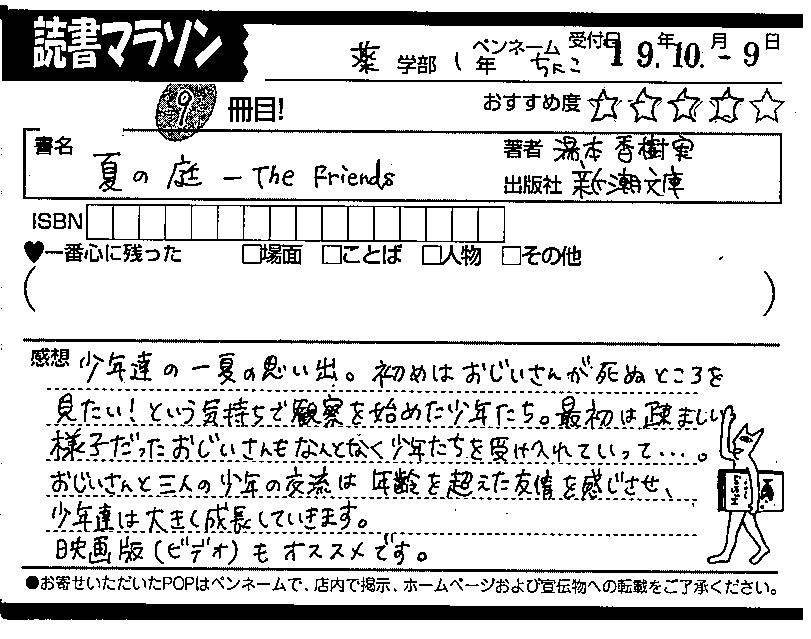 読書マラソン
薬 学部 1 年 ペンネーム ちにこ 受付日 19年10.月-9日
9 冊目! おすすめ度 ☆☆☆☆☆
書名 夏の庭 － The Friends
著者 湯本香樹実
出版社 新潮文庫
ISBN
♥一番心に残った □場面 □ことば □人物 □その他
( )
感想 少年達の一夏の思い出。初めはおじいさんが死ぬところを
見たい!という気持ちで観察を始めた少年たち。最初は疎ましい
様子だったおじいさんもなんとなく少年たちを受け入れていって・・・。
おじいさんと三人の少年の交流は年齢を超えた友情を感じさせ、
少年達は大きく成長していきます。
映画版(ビデオ)もオススメです。
●お寄せいただいたPOPはペンネームで、店内で掲示、ホームページおよび宣伝物への転載をご了承ください。